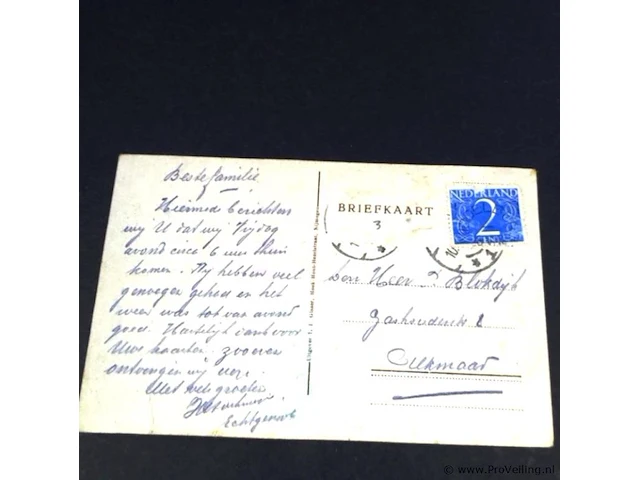 Beste familie
Hiermede berichten
wij U dat wij Vrijdag
avond circa 6 uur thuis
komen. Wij hebben veel
genoegen gehad en het
weer was tot van avond
goed. Hartelijk dank voor
Uwe kaarten. Zooeven
ontvingen wij deze.
Met vele groeten
Echtgenoote
BRIEFKAART
3
NEDERLAND
2
CENT
Den Heer P. Blokdijk
Alkmaar
© www.ProVeiling.nl